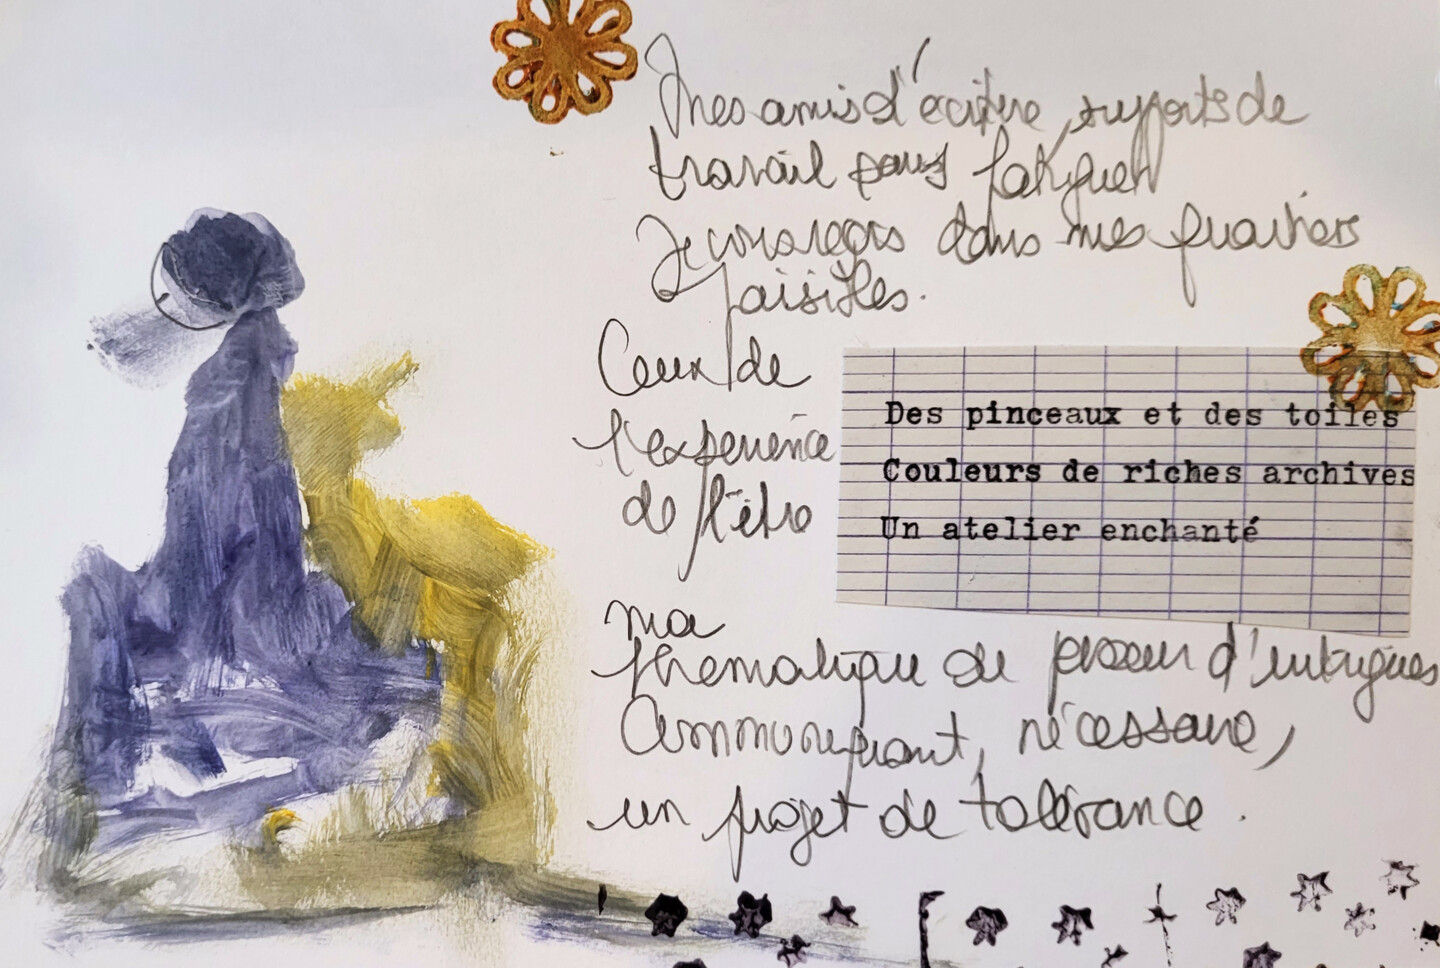 Mes amis d'écriture, supports de
travail sans fatiguer
Je voyageais dans mes quartiers
paisibles.
Ceux de
l'expérience
de l'être
Des pinceaux et des toiles
Couleurs de riches archives
Un atelier enchanté
ma
thématique de d'intrigues
Communiquant, nécessaire,
un projet de tolérance.